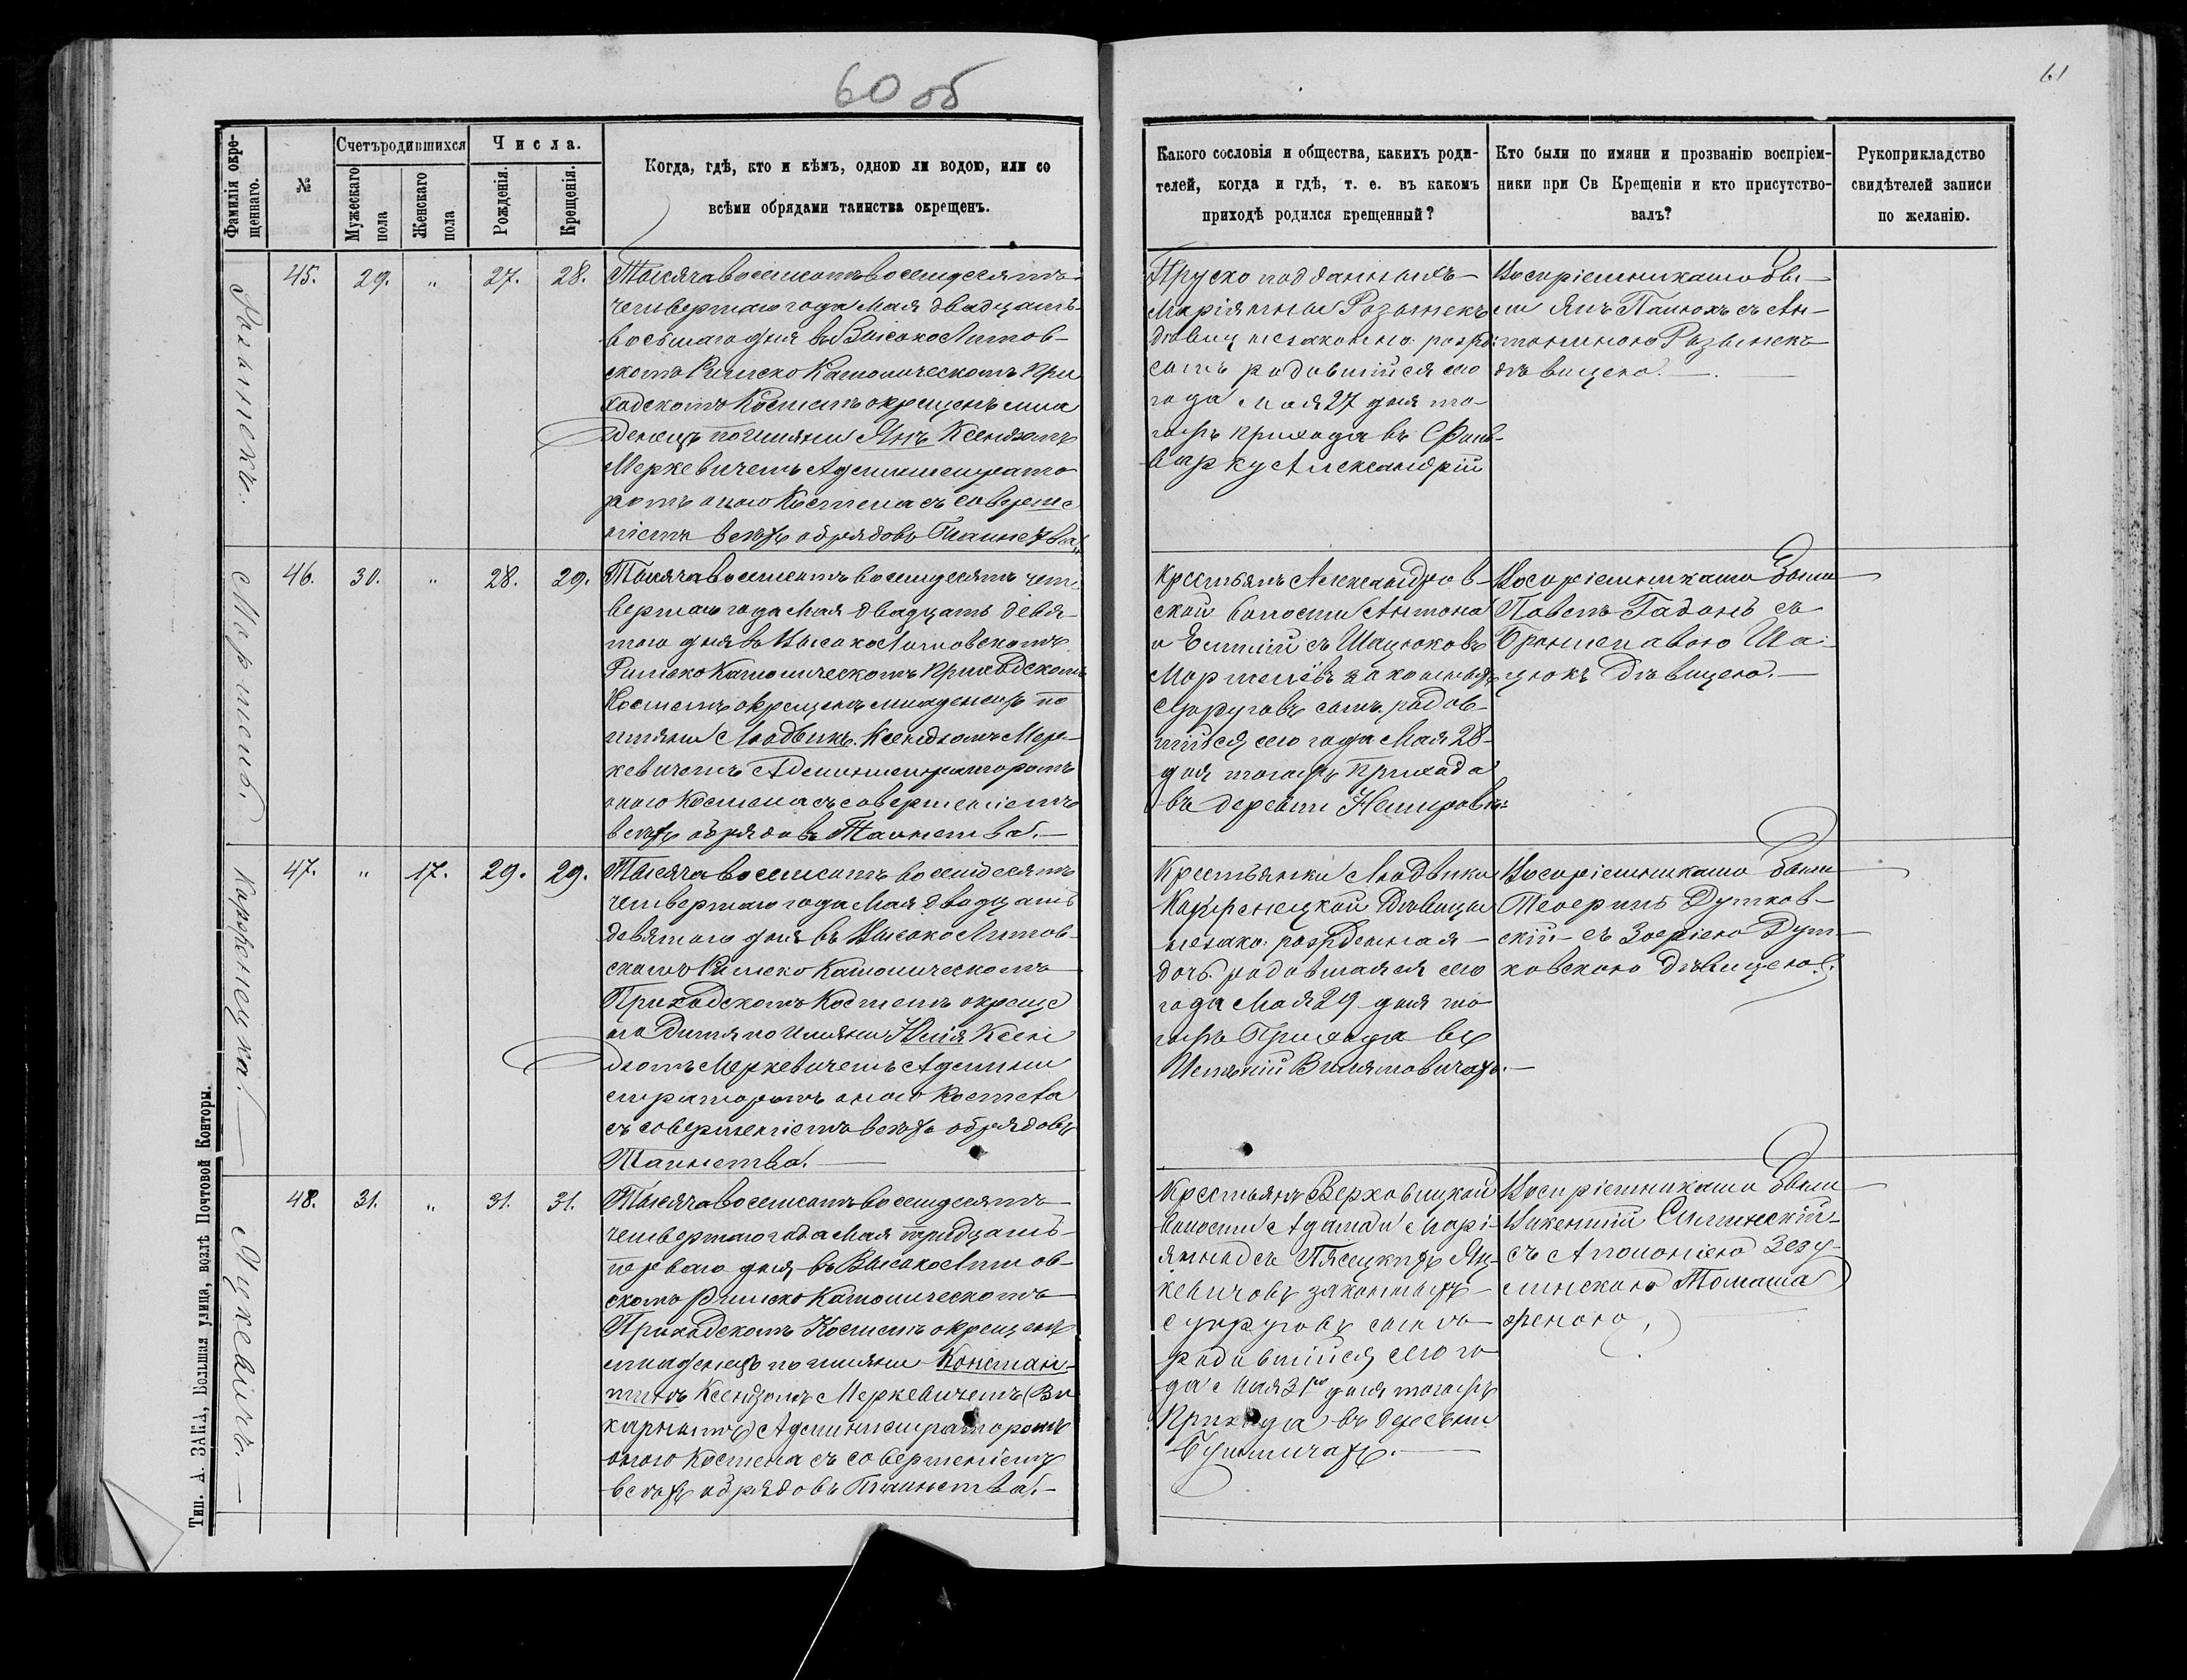 60 об
61
Фамилія окре-
щеннаго.
№
Счетъ родившихся
Мужескаго
пола
Женскаго
пола
Числа.
Рожденія.
Крещенія.
Когда, гдѣ, кто и кѣмъ, одною ли водою, или со
всѣми обрядами таинства окрещенъ.
Какого сословія и общества, какихъ роди-
телей, когда и гдѣ, т. е. въ какомъ
приходѣ родился крещенный?
Кто были по имяни и прозванію воспріем-
ники при Св Крещеніи и кто присутство-
валъ?
Рукоприкладство
свидѣтелей записи
по желанію.
45. 29. " 27. 28.
Тысяча восемсотъ восемдесятъ
четвертаго года Мая двадцать
восьмаго дня въ ВысокоЛитов-
скомъ Римско Католическомъ При
ходскомъ Костелѣ окрещенъ мла
денецъ по имяни Янъ Ксендзомъ
Меркевичемъ Администрато
ромъ оного Костела съ соверше
ніемъ всѣхъ обрядовъ Таинства
Пруско подданныхъ
Маріянны Розынекъ
дѣвицы незаконно: рожд:
сынъ родившійся сего
года Мая 27 дня то-
гожъ прихода въ Фоль-
варку Александріи
Воспріемниками бы-
ли Янъ Панюхъ съ Ан-
тониною Розынекъ
дѣвицею.
46. 30. " 28. 29.
Мартель.
Тысяча восемсотъ восемдесятъ чет-
вертаго года Мая двадцать девя-
таго дня въ ВысокоЛитовскомъ
Римско Католическомъ Приходскомъ
Костелѣ окрещенъ младенецъ по
имяни Людвикъ Ксендзомъ Мер-
кевичемъ Администраторомъ
оного Костела съ совершеніемъ
всѣхъ обрядовъ Таинства.
Крестьянъ Александров-
ской волости Антона
и Емиліи съ Шацюковъ
Мартелёвъ законныхъ
супруговъ сынъ родив-
шійся сего года Мая 28
дня тогожъ Прихода
въ деревни Немировкѣ
Воспріемниками были
Павелъ Гадонъ съ
Брониславою Ша-
цюкъ дѣвицею.
47. " 17. 29. 29.
Карженецкая
Тысяча восемсотъ восемдесятъ
четвертаго года Мая двадцать
девятаго дня въ ВысокоЛитов-
скомъ Римско Католическомъ
Приходскомъ Костелѣ окреще
но Дитя по имяни Юлія Ксен
дзомъ Меркевичемъ Админи
страторомъ оного Костела
съ совершеніемъ всѣхъ обрядовъ
Таинства.
Крестьянки Людвики
Карженецкой дѣвицы
незако: рожденная
дочь родившаяся сего
года Мая 29 дня то
гожъ Прихода въ
Имѣніи Вилямовичахъ.
Воспріемниками были
Теофиль Дутков-
скій съ Зофіею Дут-
ковскою дѣвицею.
48. 31. " 31. 31.
Яцкевичъ.
Тысяча восемсотъ восемдесятъ
четвертаго года Мая тридцать
перваго дня въ ВысокоЛитов-
скомъ Римско Католическомъ
Приходскомъ Костелѣ окрещенъ
младенецъ по имяни Констан-
тинъ Ксендзомъ Меркевичемъ (Ви
карнымъ) Администраторомъ
оного Костела съ совершеніемъ
всѣхъ обрядовъ Таинства.
Крестьянъ Верховицкой
волости Адама и Марі-
янны съ Пясецкихъ Яц-
кевичовъ законныхъ
супруговъ сынъ
родившійся сего го
да Мая 31го дня тогожъ
Прихода въ деревни
Воспріемниками были
Викентій Силинскій
съ Аполоніею Зезу-
линскою Томаша
женою.
Тип. А. ЗАКА, Большая улица, возлѣ Почтовой Конторы.